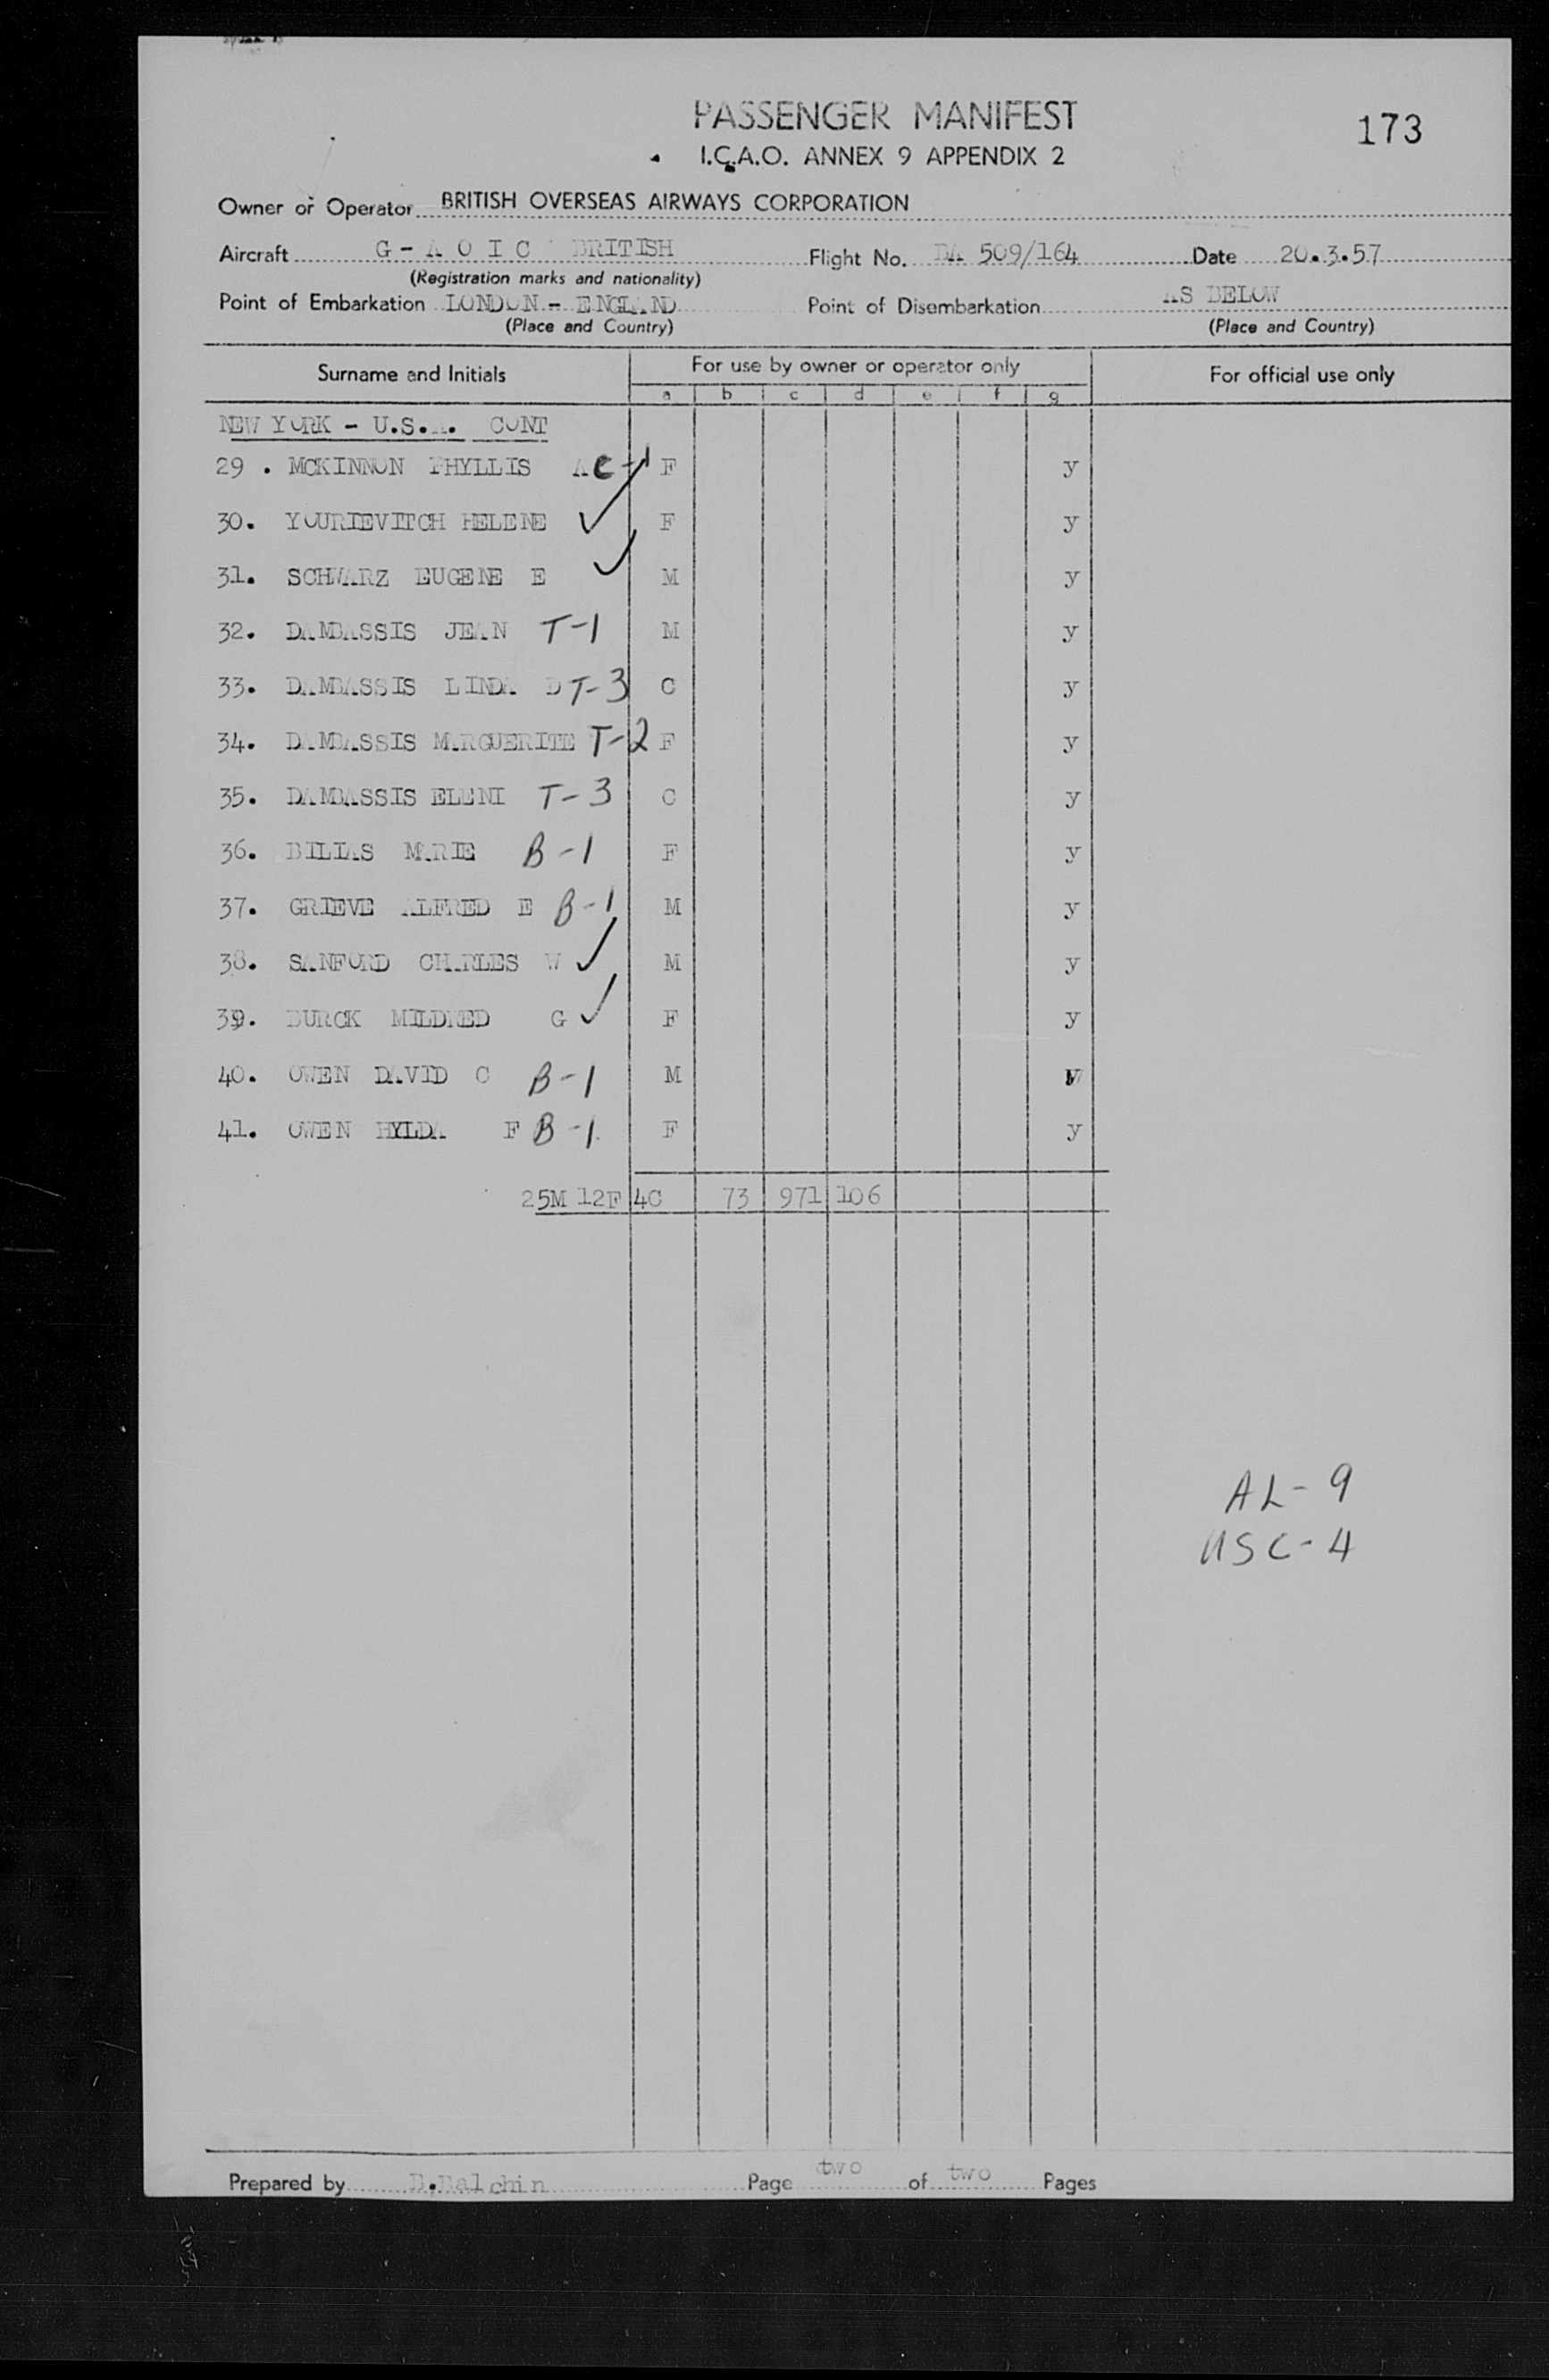 PASSENGER MANIFEST
173
I.C.A.O. ANNEX 9 APPENDIX 2
Owner or Operator BRITISH OVERSEAS AIRWAYS CORPORATION
Aircraft G - A O I C BRITISH Flight No. BA 509/164 Date 20.3.57
(Registration marks and nationality)
Point of Embarkation LONDON - ENGLAND Point of Disembarkation AS BELOW
(Place and Country) (Place and Country)
Surname and Initials For use by owner or operator only For official use only
a b c d e f g
NEW YORK - U.S.A. CONT
29 . MCKINNON PHYLLIS A C-1 F y
30. YOURIEVITCH HELENE ✓ F y
31. SCHWARZ EUGENE E ✓ M y
32. DAMBASSIS JEAN T-1 M y
33. DAMBASSIS LINDA D T-3 C y
34. DAMBASSIS MARGUERITE T-2 F y
35. DAMBASSIS ELENI T-3 C y
36. BILIAS MARIE B-1 F y
37. GRIEVE ALFRED E B-1 M y
38. SANFORD CHARLES W ✓ M y
39. BURCK MILDRED G ✓ F y
40. OWEN DAVID C B-1 M
41. OWEN HYLDA F B-1 F y
25M 12F 4C 73 971 106
AL-9
USC-4
Prepared by D.Balchin Page two of two Pages